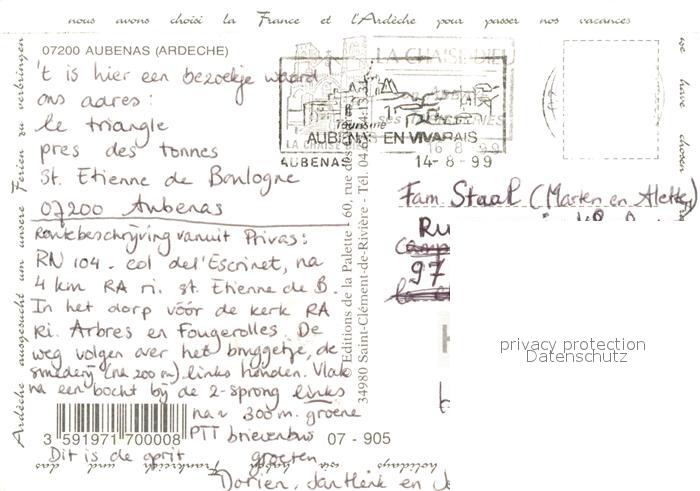 nous avons choisi la France et l'Ardèche pour passer nos vacances
07200 AUBENAS (ARDECHE)
't is hier een bezoekje waard
ons adres:
le triangle
pres des tonnes
St. Etienne de Boulogne
07200 Aubenas
Routebeschrijving vanuit Privas:
RN 104 - col de l'Escrinet, na
4 km RA ri. St. Etienne de B.
In het dorp vóór de kerk RA
ri. Arbres en Fougerolles. De
weg volgen over het bruggetje, de
smederij (na 200 m) links houden. Vlak
na een bocht bij de 2-sprong links
na ~ 300 m. groene
PTT brievenbus
Dit is de oprit
groeten
Dorien, Jan Henk en
3 591971 700008
07 - 905
LA CHAISE DIEU
Tourisme
AUBENAS EN VIVARAIS
AUBENAS
14-8-99
16 8 99
Editions de la Palette - 60, rue des
34980 Saint-Clément-de-Rivière - Tél. 04
Fam. Staal (Marten en Aletta)
Ru
97
privacy protection
Datenschutz
we have chosen
holidays
Frankreich und das
Ardèche ausgesucht um unsere Ferien zu verbringen